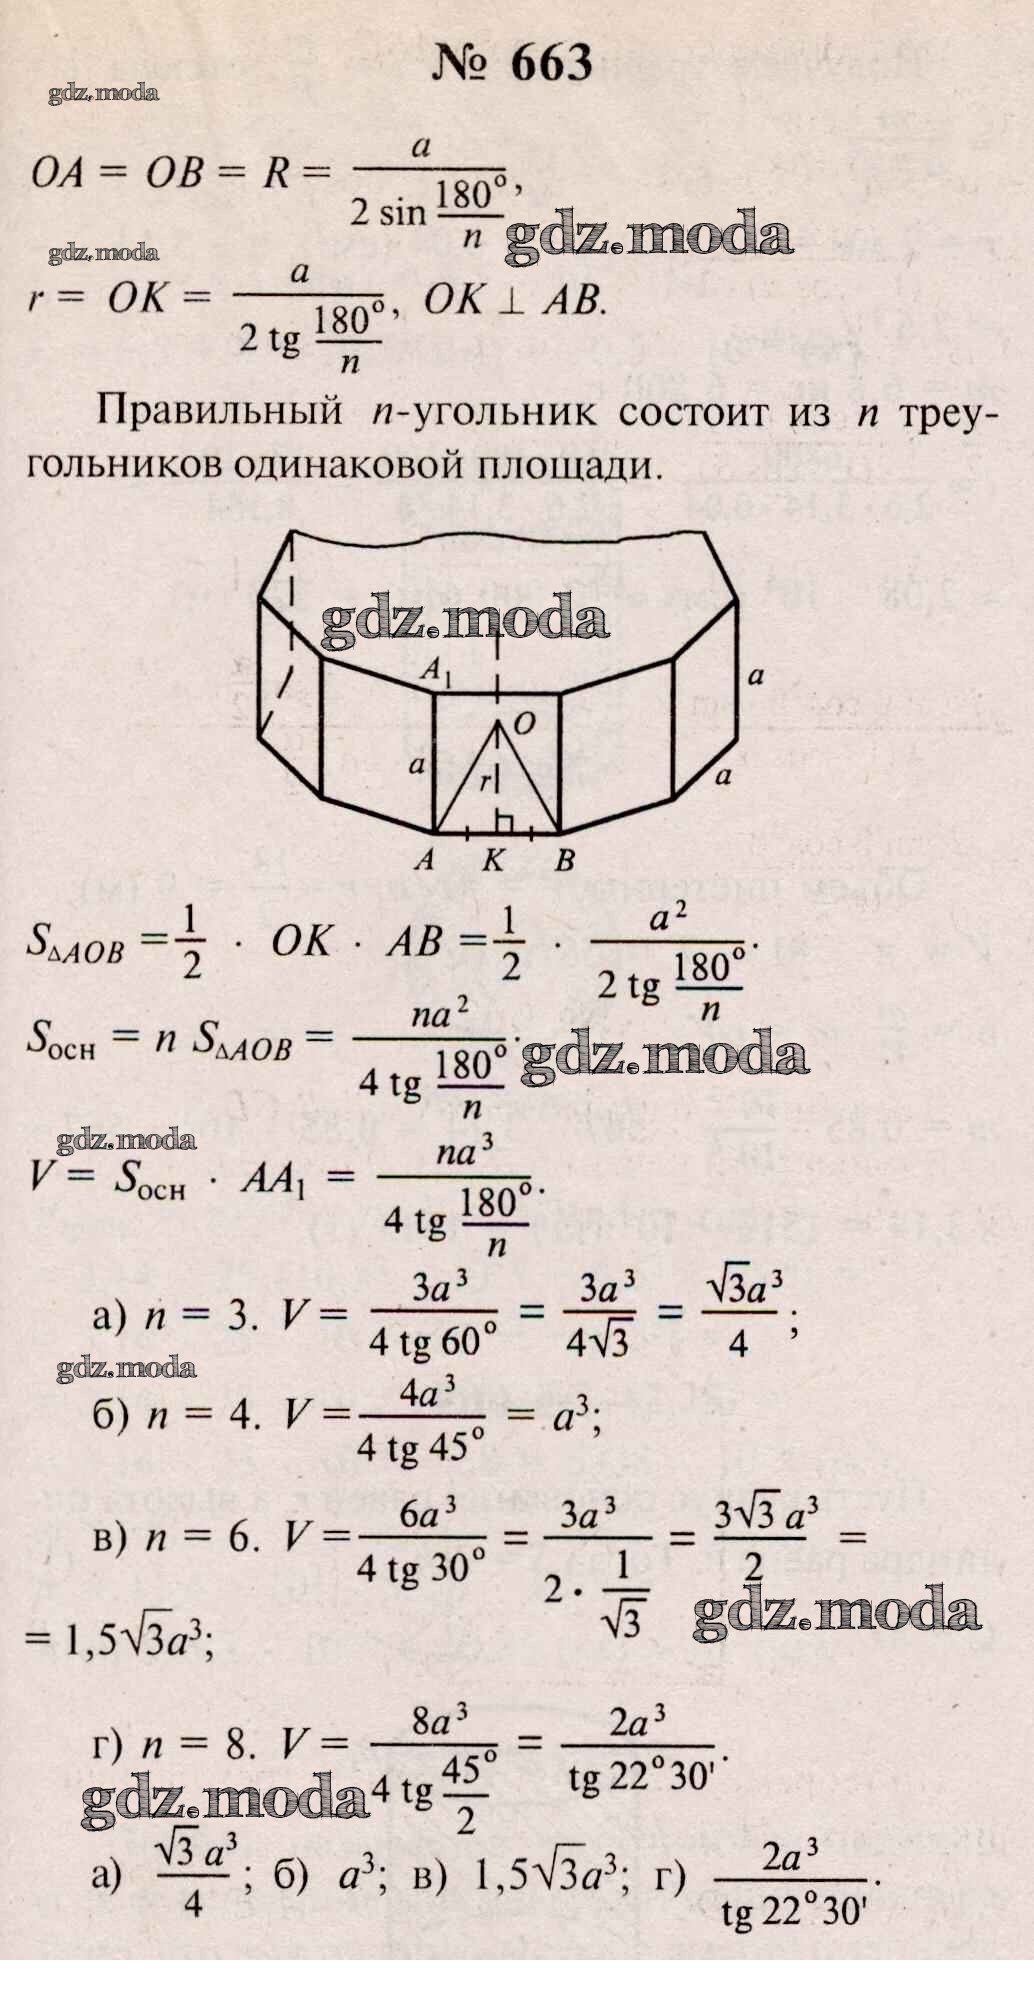 № 663
gdz.moda
OA = OB = R = a / (2 sin 180°/n),
gdz.moda
gdz.moda
r = OK = a / (2 tg 180°/n), OK ⊥ AB.
Правильный n-угольник состоит из n треу-
гольников одинаковой площади.
gdz.moda
A₁
a
O
a
r
a
A K B
S△AOB = 1/2 · OK · AB = 1/2 · a² / (2 tg 180°/n).
Sосн = n S△AOB = na² / (4 tg 180°/n).
gdz.moda
gdz.moda
V = Sосн · AA₁ = na³ / (4 tg 180°/n).
а) n = 3. V = 3a³ / (4 tg 60°) = 3a³ / (4√3) = √3a³ / 4;
gdz.moda
б) n = 4. V = 4a³ / (4 tg 45°) = a³;
в) n = 6. V = 6a³ / (4 tg 30°) = 3a³ / (2 · 1/√3) = 3√3 a³ / 2 =
gdz.moda
= 1,5√3a³;
г) n = 8. V = 8a³ / (4 tg 45°/2) = 2a³ / (tg 22°30').
gdz.moda
а) √3 a³ / 4; б) a³; в) 1,5√3a³; г) 2a³ / (tg 22°30').